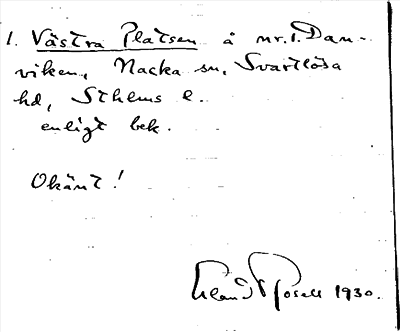 1. Västra Platsen å nr. 1. Dan-
viken, Nacka sn, Svartlösa
hd, Sthlms l.
enligt bek.
Okänt!
1930.